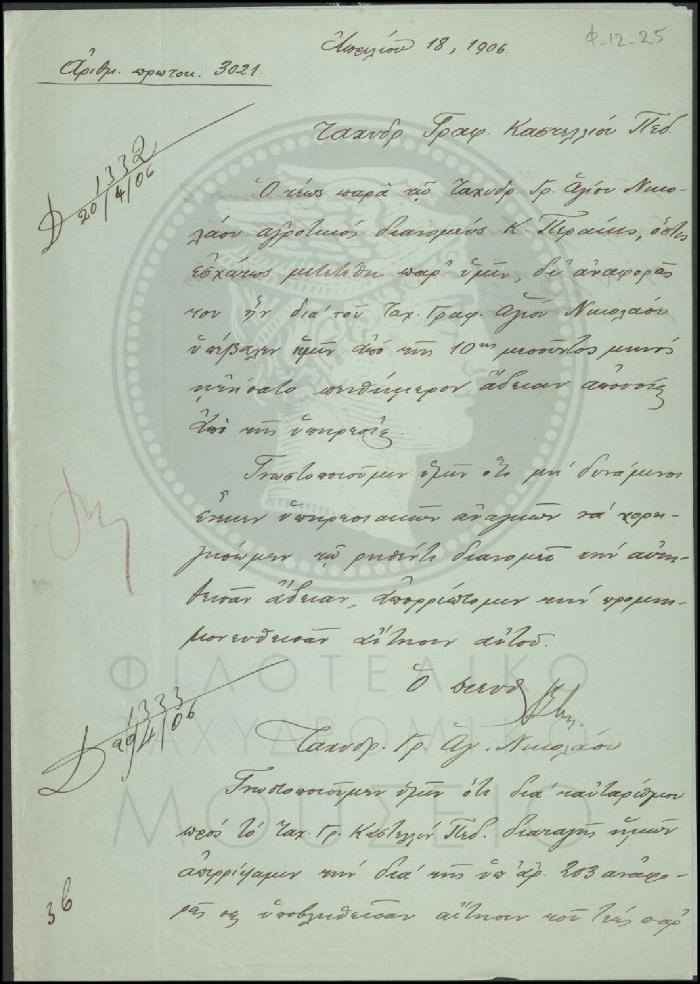 Φ-12-25
Ἀπριλίου 18, 1906
Ἀριθμ. πρωτοκ. 3021.
Ταχυδρ Γραφ. Καστελλίου Πεδ.
1332
20/4/06
Ὁ τέως παρὰ τῷ Ταχυδρ Γρ. Ἁγίου Νικο-
λάου ἀγροτικὸς διανομεὺς Κ. , ὅστις
ἐσχάτως μετετέθη παρ' ὑμῖν, δι' ἀναφορᾶς
του ἣν διὰ τοῦ Ταχ. Γραφ. Ἁγίου Νικολάου
ὑπέβαλεν ἡμῖν ἀπὸ τῆς 10ης μεσοῦντος μηνὸς
ᾐτήσατο πενθήμερον ἄδειαν ἀπουσίας
ἀπὸ τῆς ὑπηρεσίας.
Γνωστοποιοῦμεν ὑμῖν ὅτι μὴ δυνάμενοι
ἕνεκεν ὑπηρεσιακῶν ἀναγκῶν νὰ χορη-
γήσωμεν τῷ ῥηθέντι διανομεῖ τὴν αἰτη-
θεῖσαν ἄδειαν, ἀπορρίπτομεν τὴν προμνη-
μονευθεῖσαν αἴτησιν αὐτοῦ.
Ὁ Διευθ
1333
20/4/06
Ταχυδρ. Γρ. Ἁγ. Νικολάου
Γνωστοποιοῦμεν ὑμῖν ὅτι διὰ ταὐταρίθμου
πρὸς τὸ Ταχ. Γρ. Καστελλίου Πεδ. διαταγῆς ἡμῶν
ἀπερρίψαμεν τὴν διὰ τῆς ὑπ' ἀρ. 203 ἀναφο-
ρᾶς σας ὑποβληθεῖσαν αἴτησιν τοῦ τέως παρ'
36
ΦΙΛΟΤΕΛΙΚΟ
ΤΑΧΥΔΡΟΜΙΚΟ
ΜΟΥΣΕΙΟ